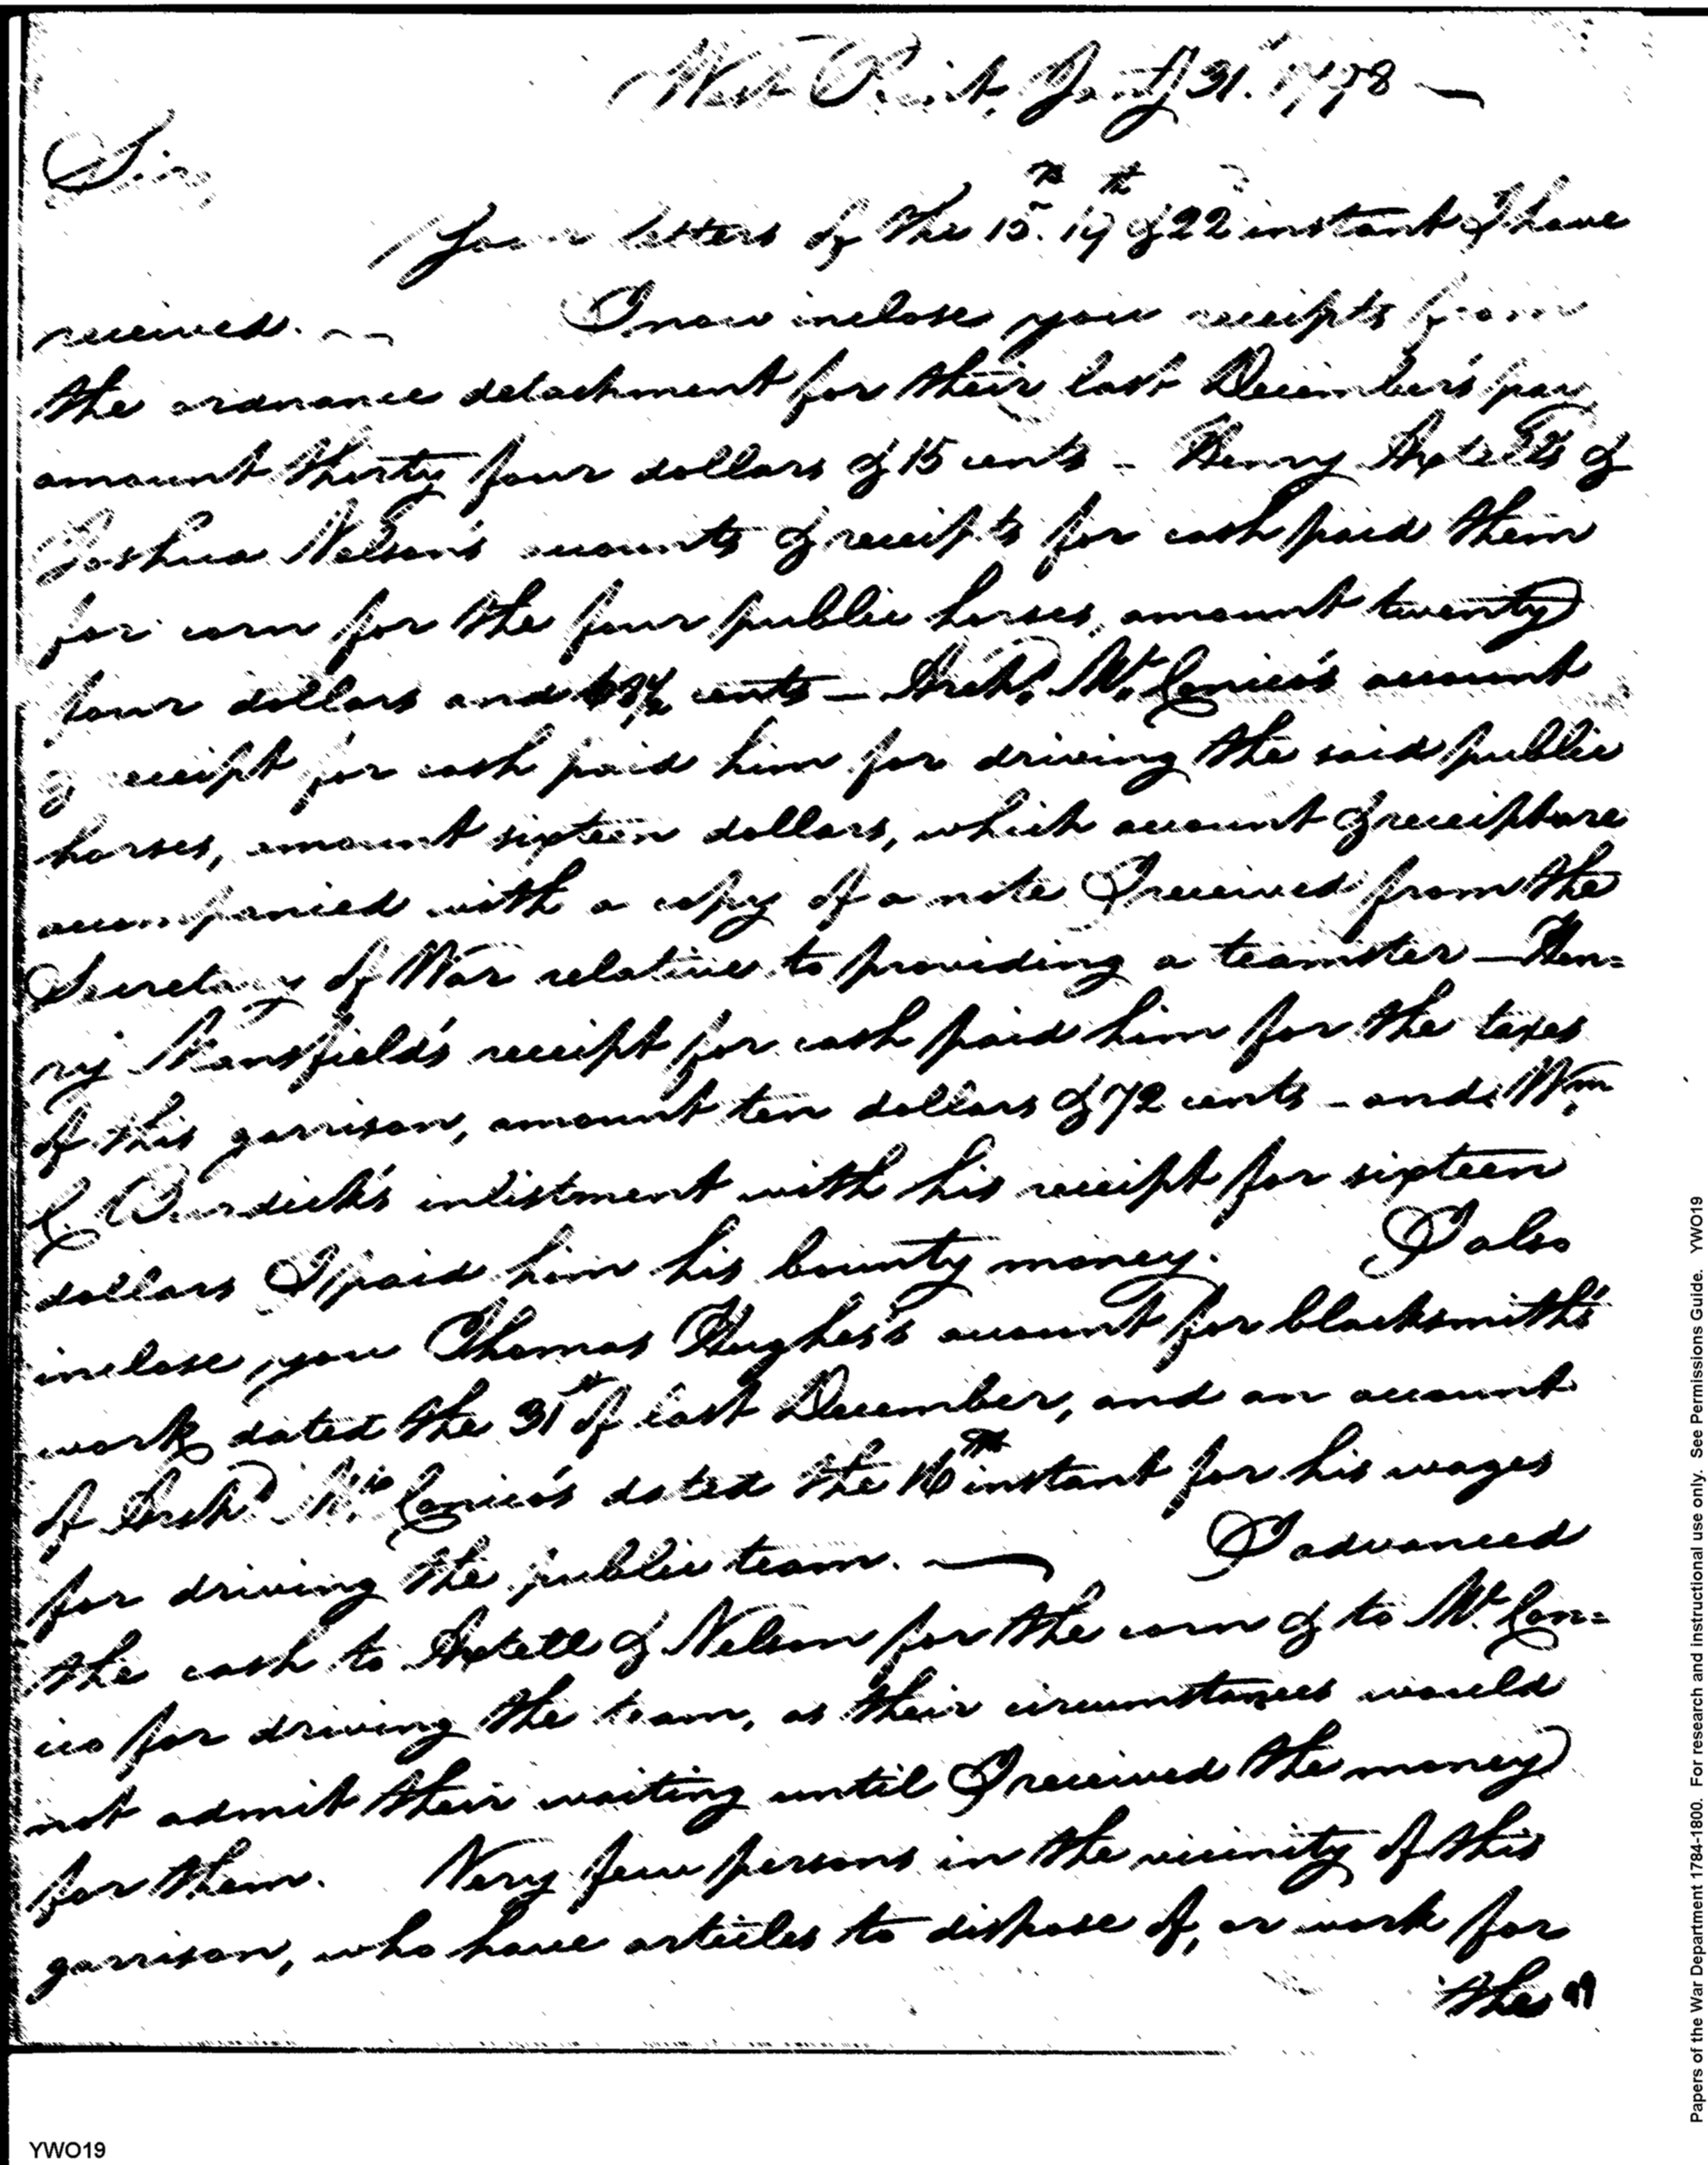 West Point, Jany 31. 1798 —
Sir,
Your letters of the 15th. 19th & 22 instant I have
received. — I now inclose you receipts from
the ordnance detachment for their last December's pay
amount thirty four dollars & 15 cents - Henry Axtell's &
Joshua Nelson's accounts & receipts for cash paid them
for corn for the four public horses, amount twenty
four dollars and cents — Archd. Mc. Conico's account
& receipt for cash paid him for driving the said public
horses, amount sixteen dollars, which account & receipt are
accompanied with a copy of a note I received from the
Secretary of War relative to providing a teamster — Hen=
ry Mansfield's receipt for cash paid him for the taxes
of this garrison, amount ten dollars & 72 cents - and Wm.
C. Burdick's inlistment with his receipt for sixteen
dollars I paid him his bounty money. I also
inclose you Thomas Hughes's account for blacksmith's
work dated the 31st of last December, and an account
of Archd. Mc. Conico's dated the 16th instant for his wages
for driving the public team. — I advanced
the cash to Axtell & Nelson for the corn & to Mc. Con=
ico for driving the team, as their circumstances would
not admit their waiting until I received the money
for them. Very few persons in the vicinity of this
garrison, who have articles to dispose of, or work for
the
Papers of the War Department 1784-1800. For research and instructional use only. See Permissions Guide. YWO19
YWO19